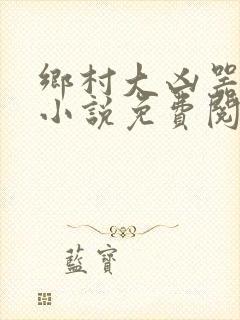 鄉村大凶器
小說免費閱
藍寶